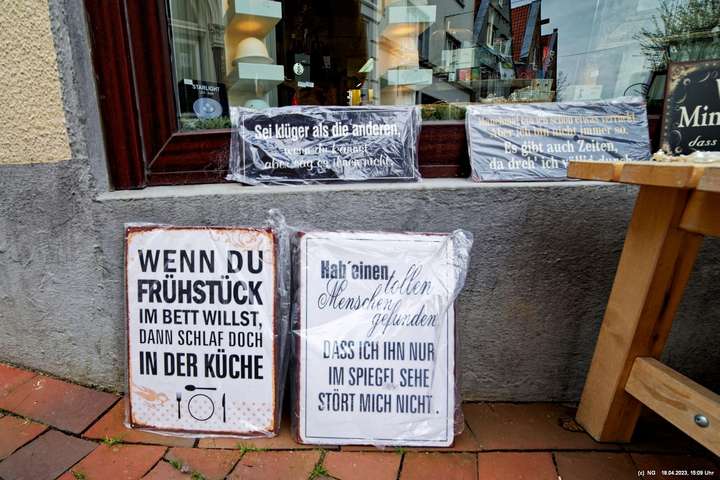 STARLIGHT
Sei klüger als die anderen,
wenn du kannst
aber sag es ihnen nicht.
Manchmal bin ich schon etwas verrückt
Aber ich bin nicht immer so.
Es gibt auch Zeiten,
da dreh' ich
dass
WENN DU
FRÜHSTÜCK
IM BETT WILLST,
DANN SCHLAF DOCH
IN DER KÜCHE
Hab'einen tollen
Menschen
gefunden.
DASS ICH IHN NUR
IM SPIEGEL SEHE
STÖRT MICH NICHT.
(c) NG 18.04.2023, 15:09 Uhr